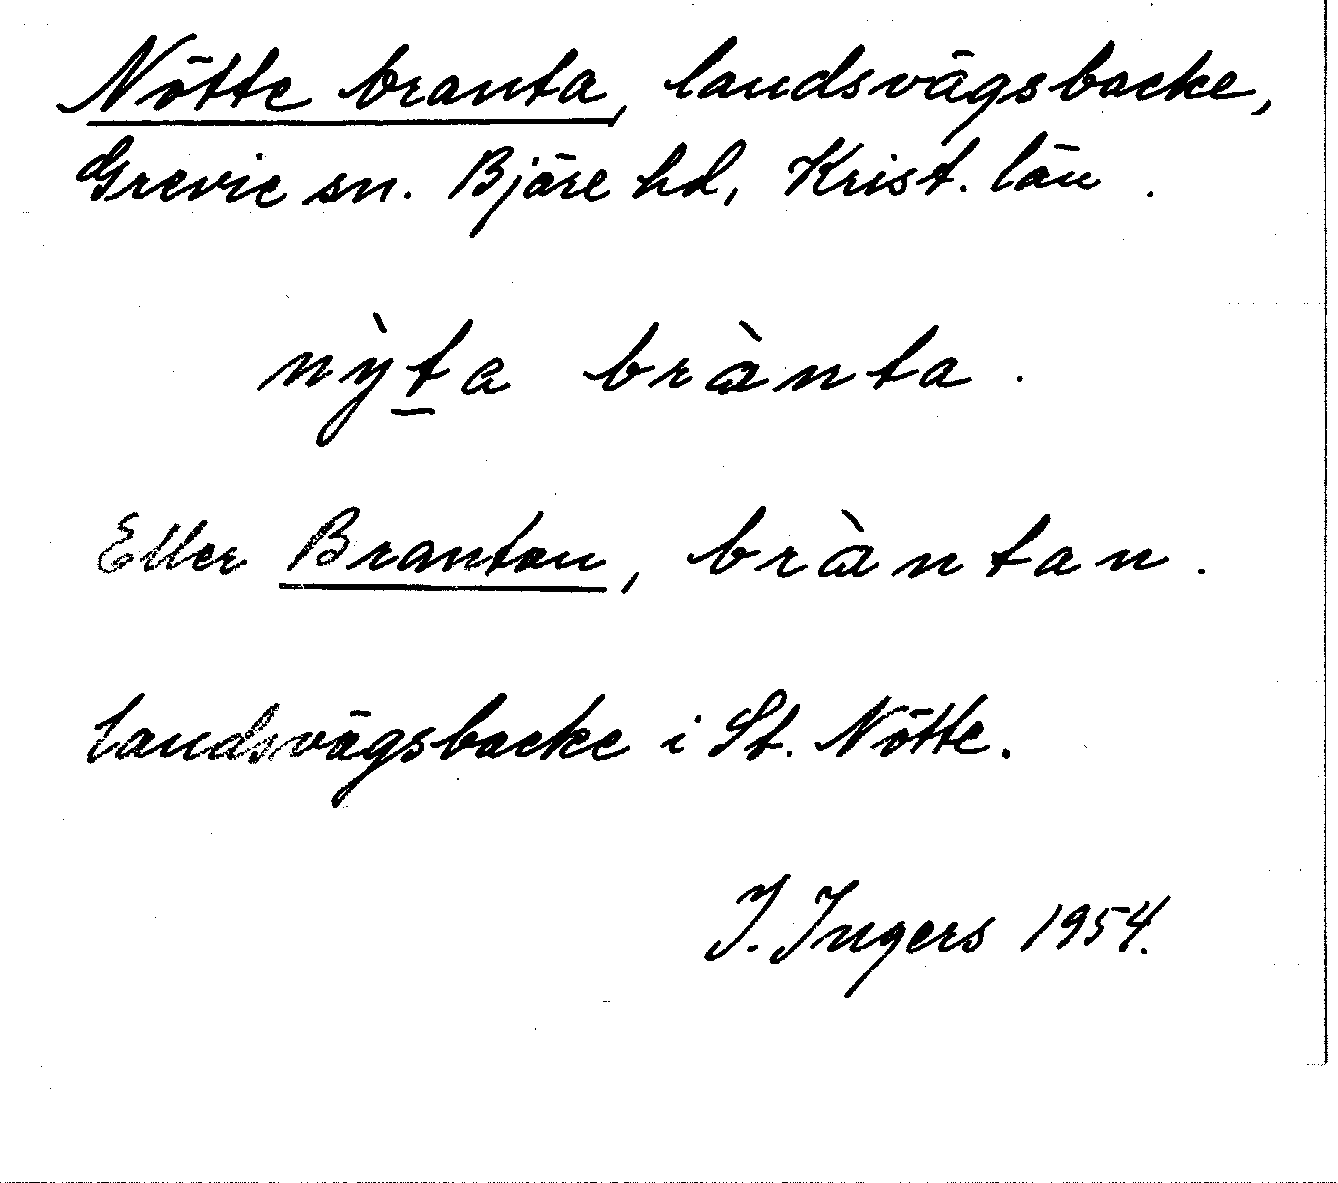 Nötte branta, landsvägsbacke,
Grevie sn. Bjäre hd, Krist. län.
nỳt̲a brànta.
Eller Brantan, bràntan.
landsvägsbacke i St. Nötte.
I. Ingers 1954.